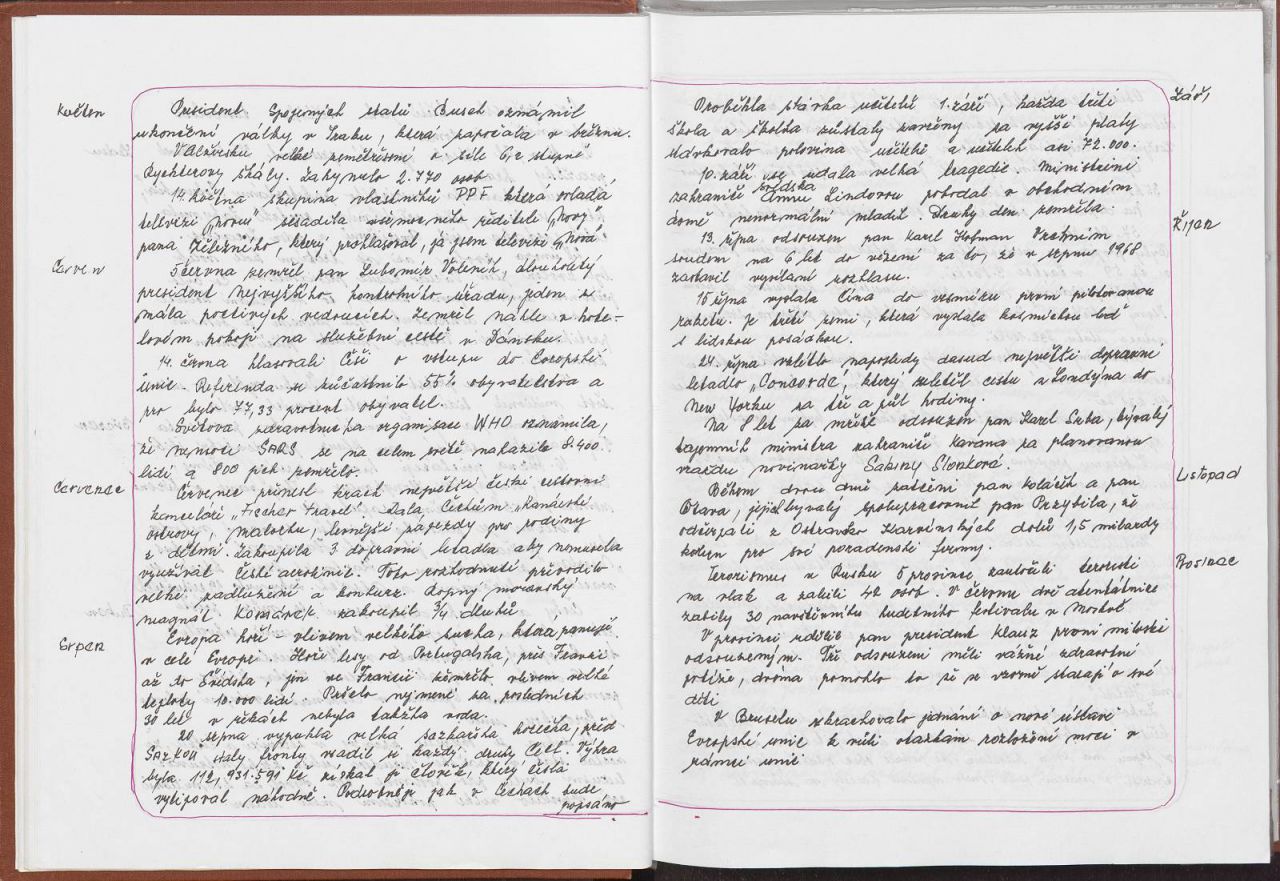 Květen
President Spojených států Busch oznámil
ukončení války v Iraku, která započala v březnu.
V Alžírsku velké zemětřesení o síle 6,2 stupně
Rychterovy škály. Zahynulo 2.770 osob
14. května skupina vlastníků PPF která ovládá
televizi „Novu" sesadila všemocného ředitele Novy
pana Železného, který prohlašoval, já jsem televize Nova
Červen
5 června zemřel pan Lubomír Voleník, dlouholetý
president Nejvyššího kontrolního úřadu, jeden z
mála poctivých vedoucích. Zemřel náhle v hote-
lovém pokoji na služební cestě v Dánsku.
14. června hlasovali Češi o vstupu do Evropské
únie. Referenda se zúčastnilo 55% obyvatelstva a
pro bylo 77,33 procent obyvatel.
Světová zdravotnická organisace WHO oznámila,
že nemocí SARS se na celém světě nakazilo 8.400
lidí a 800 jich zemřelo.
Červenec
Červenec přinesl krach největší české cestovní
kanceláře „Fischer Travel" Dala Čechům „Kanárské
ostrovy", Malorku, levnější zájezdy pro rodiny
z dětmi. Zakoupila 3 dopravní letadla aby nemusela
využívat České aerolinie. Toto rozhodnutí přivodilo
velké zadlužení a konkurz. Ropný moravský
magnát Komárek zakoupil 3/4 dluhů
Srpen
Evropa hoří – vlivem velkého sucha, která panuje
v celé Evropě Hoří lesy od Portugalska, přes Francii
až do Švédska, jen ve Francii zemřelo vlivem velké
teploty 10.000 lidí. Peklo nejméně za posledních
30 let v řekách nebyla takřka voda.
20 srpna vypukla velká sazkařská horečka, před
SAZKOU stály fronty vsadil si každý druhý Čech. Výhra
byla 112,931.591 Kč získal ji člověk, který čísla
vytipoval náhodně. Podrobněji jak v Čechách bude
popsáno
Září
Proběhla stávka učitelů 1. září, každá třetí
škola a školka zůstaly zavřeny za vyšší platy
stávkovalo polovina učitelů a učitelek asi 72.000.
10. září se udála velká tragedie. Ministryni
zahraničí Švédska Annu Lindovou pobodal v obchodním
domě nenormální mladík. Druhý den zemřela.
Říjen
13. října odsouzen pan Karel Hofman Vrchním
soudem na 6 let do vězení za to, že v srpnu 1968
zastavil vysílání rozhlasu.
15 října vyslala Čína do vesmíru první pilotovanou
raketu. Je třetí zemí, která vyslala kosmickou loď
s lidskou posádkou.
24. října vzlétlo naposledy dosud největší dopravní
letadlo „Concorde", který zaletěl cestu z Londýna do
New Yorku za tři a půl hodiny.
Na 8 let za mříže odsouzen pan Karel Srba, bývalý
tajemník ministra zahraničí Kavana za plánovanou
vraždu novinářky Sabiny Slonkové.
Listopad
Během dvou dnů zatčeni pan Kolářík a pan
Otava, jejich bývalý spolupracovník pan Przybila, že
odčerpali z Ostravsko Karvinských dolů 1,5 miliardy
korun pro své poradenské firmy.
Prosinec
Terorismus v Rusku 5 prosince zaútočili teroristi
na vlak a zabili 42 osob. V červnu dvě atentátnice
zabily 30 návštěvníků hudebního festivalu v Moskvě
V prosinci udělil pan president Klauz první milosti
odsouzeným. Tři odsouzení měli vážné zdravotní
potíže, dvěma pomohlo to že se vzorně starají o své
děti
V Bruselu zkrachovalo jednání o nové ústavě
Evropské unie k vůli otázkám rozložení moci v
rámci unie